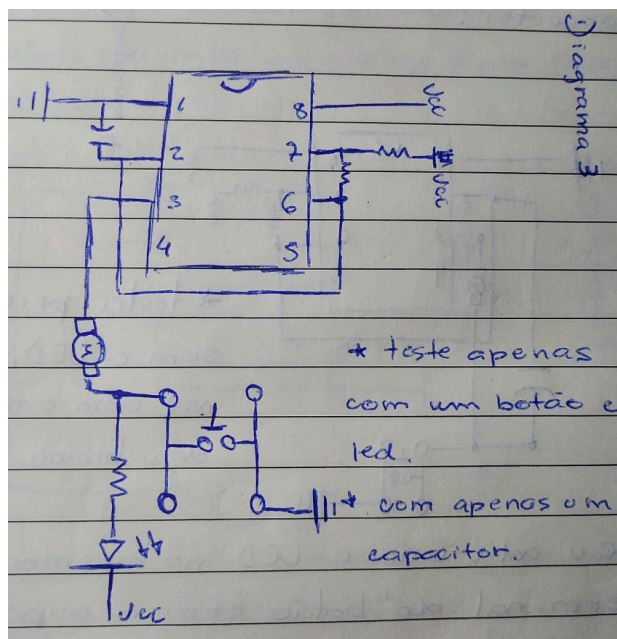 Diagrama 3
1
8
Vcc
2
7
Vcc
3
6
4
5
M
* teste apenas
com um botão e
led.
* com apenas um
capacitor.
Vcc